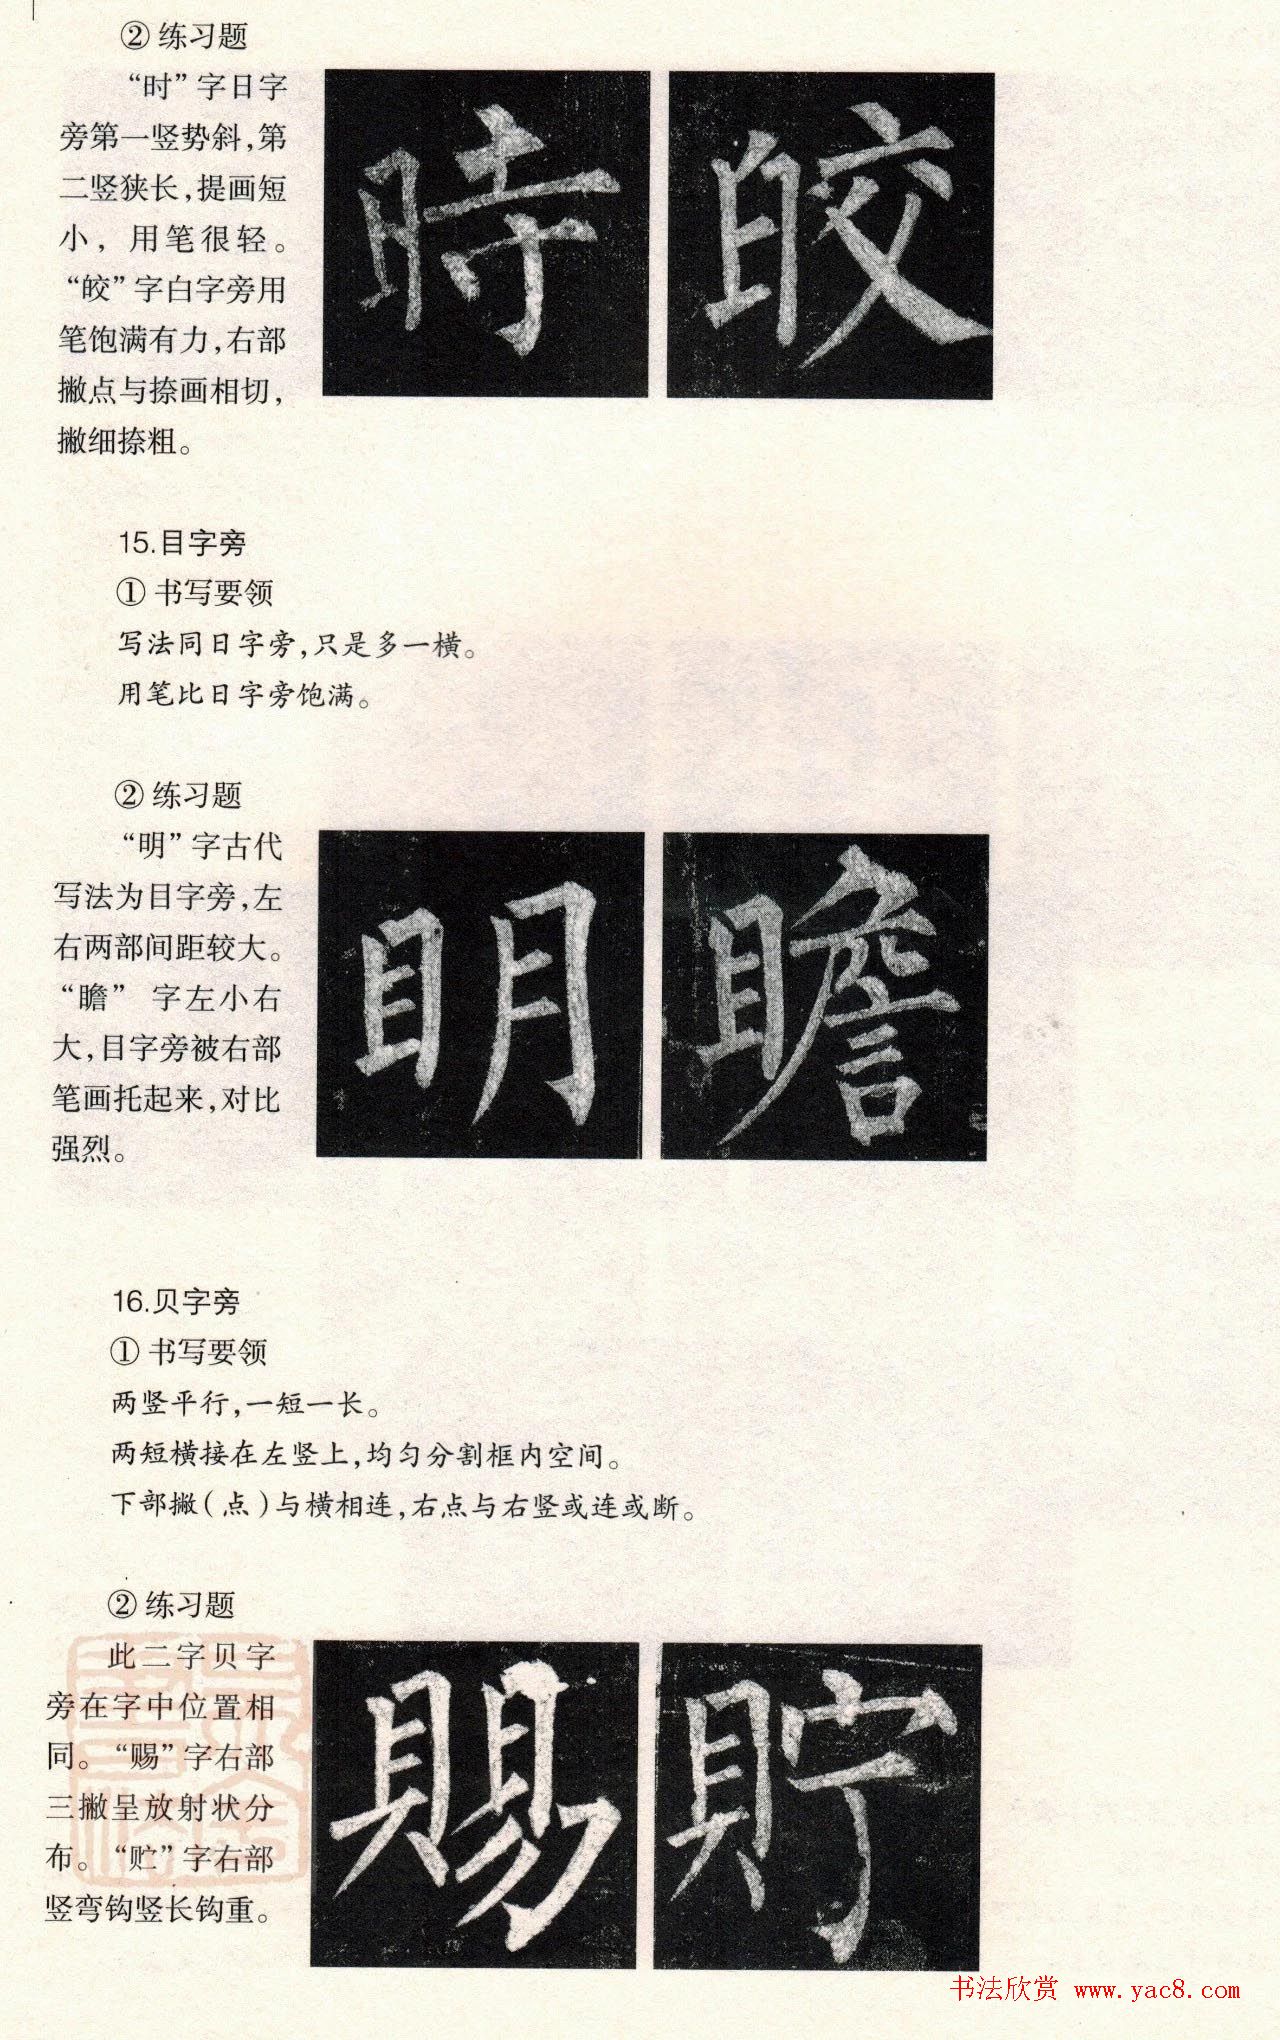 ② 练习题
“时”字日字
旁第一竖势斜,第
二竖狭长,提画短
小，用笔很轻。
“皎”字白字旁用
笔饱满有力,右部
撇点与捺画相切,
撇细捺粗。
時 皎
15.目字旁
① 书写要领
写法同日字旁,只是多一横。
用笔比日字旁饱满。
② 练习题
“明”字古代
写法为目字旁,左
右两部间距较大。
“瞻”字左小右
大,目字旁被右部
笔画托起来,对比
强烈。
明 瞻
16.贝字旁
① 书写要领
两竖平行,一短一长。
两短横接在左竖上,均匀分割框内空间。
下部撇(点)与横相连,右点与右竖或连或断。
② 练习题
此二字贝字
旁在字中位置相
同。“赐”字右部
三撇呈放射状分
布。“贮”字右部
竖弯钩竖长钩重。
賜 貯
书法欣赏 www.yac8.com